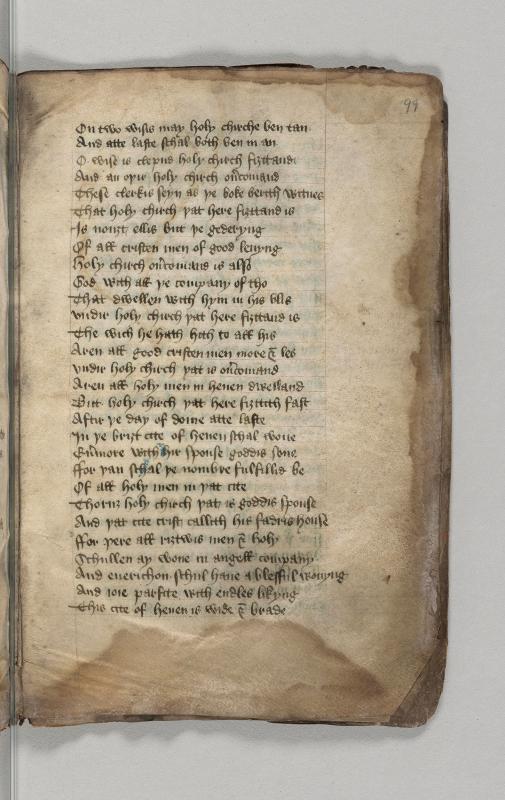 99
On two wisis may holy chirche ben tan
And atte laste schal both ben in an
O wise is clepud holy chirch fiʒttand
And an oþir holy chirch ouercomand
These clerkis seyn as þe boke berith witnes
That holy chirch þat here fiʒttand is
Is nouʒt ellis but þe gederyng
Of all cristen men of good leuyng
Holy chirch ouercomand is also
God with all þe company of tho
That dwellen with hym in his blis
vndir holy chirch þat here fiʒttand is
The wich he hath hith to all his
Aren all good cristen men more & les
vndir holy chirch þat is ouercomand
Aren all holy men in heuen dwelland
But holy chirch þat here fiʒttith fast
Aftir þe day of dome atte laste
In þe briʒt cite of heuen schal wone
Euermore with hir spouse goddis sone
ffor þan schal þe nombre fulfillid be
Of all holy men in þat cite
Thoruʒ holy chirch þat is goddis spouse
And þat cite crist callith his fadris house
ffor þere all riʒtwis men & holy
Schullen ay wone in angell company
And euerichon schul haue a blesful wonyng
And ioie parfite with endles likyng
This cite of heuen is wide & brade